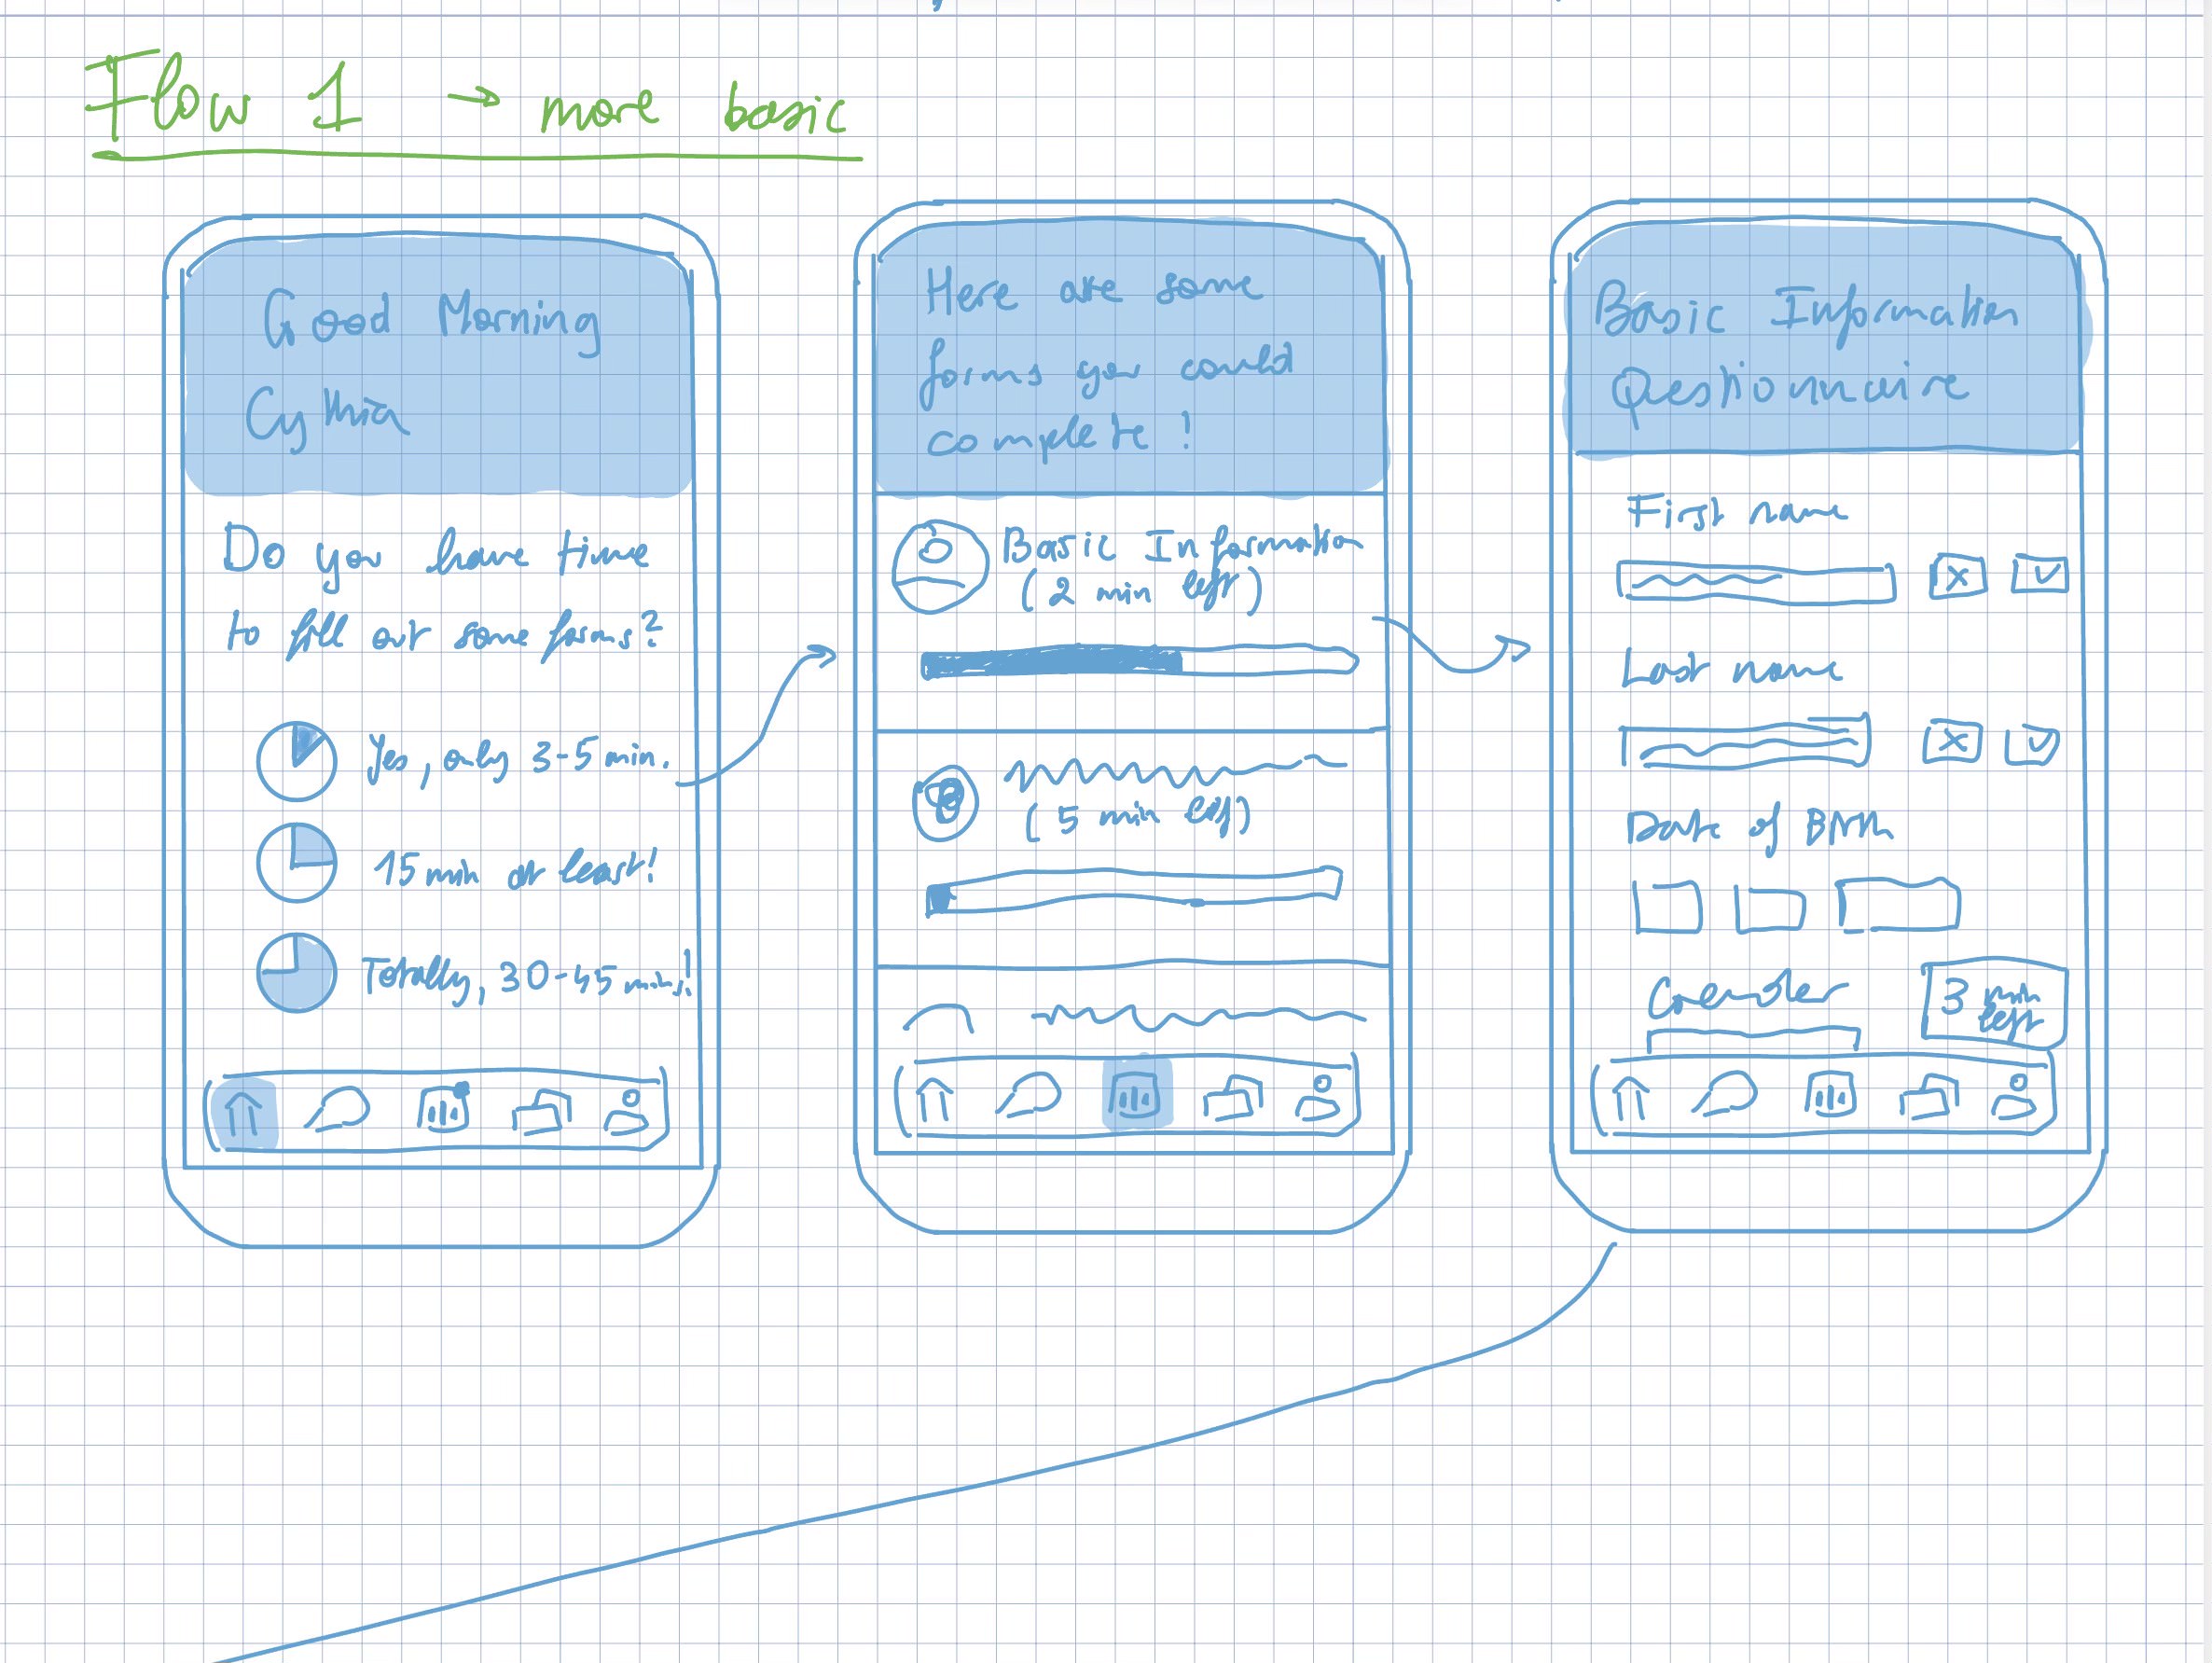 Flow 1 → more basic
Good Morning
Cythia
Do you have time
to fill out some forms?
Yes, only 3-5 min.
15 min at least!
Totally, 30-45 mins!
Here are some
forms you could
complete!
Basic Information
(2 min left)
(5 min left)
Basic Information
Questionnaire
First name
Last name
Date of Birth
Gender
3 min
left